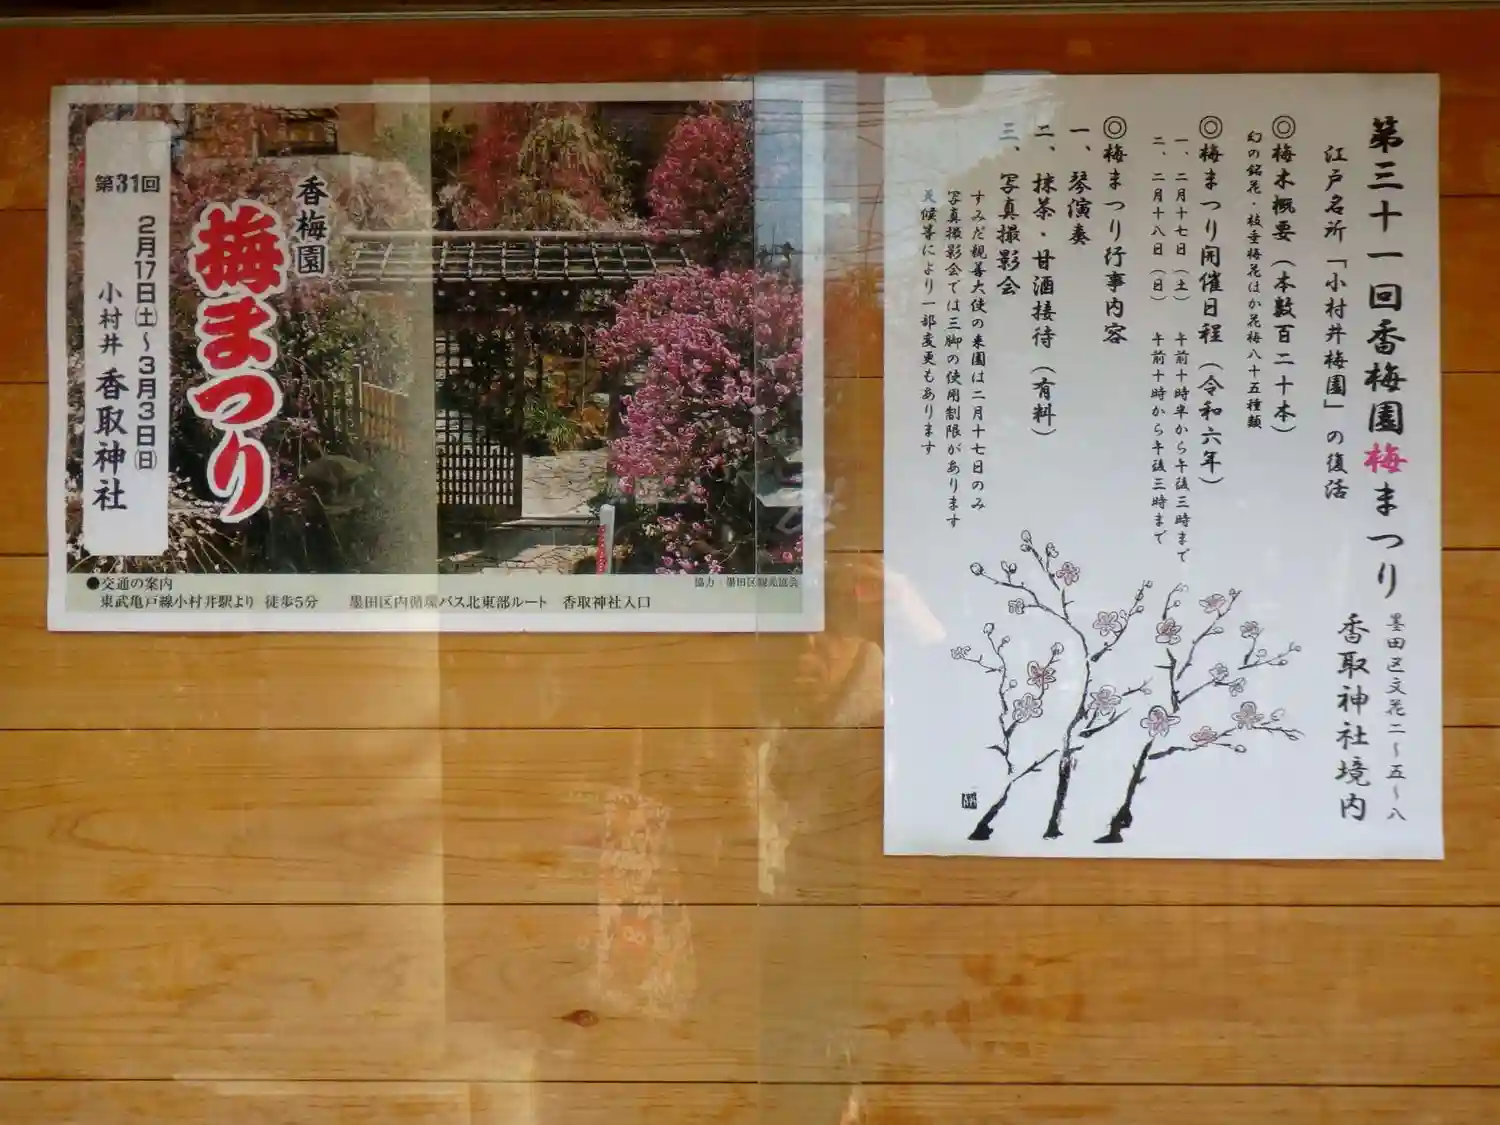 第31回
2月17日(土)～3月3日(日)
小村井 香取神社
香梅園
梅まつり
●交通の案内
東武亀戸線小村井駅より 徒歩5分 墨田区内循環バス北東部ルート 香取神社入口
協力：墨田区観光協会
第三十一回香梅園梅まつり
墨田区文花二～五～八
香取神社境内
江戸名所「小村井梅園」の復活
◎梅木概要（本数百二十本）
幻の銘花・枝垂梅花ほか花梅八十五種類
◎梅まつり開催日程（令和六年）
一、二月十七日（土） 午前十時半から午後三時まで
二、二月十八日（日） 午前十時から午後三時まで
◎梅まつり行事内容
一、琴演奏
二、抹茶・甘酒接待（有料）
三、写真撮影会
すみだ親善大使の来園は二月十七日のみ
写真撮影会では三脚の使用制限があります
天候等により一部変更もあります